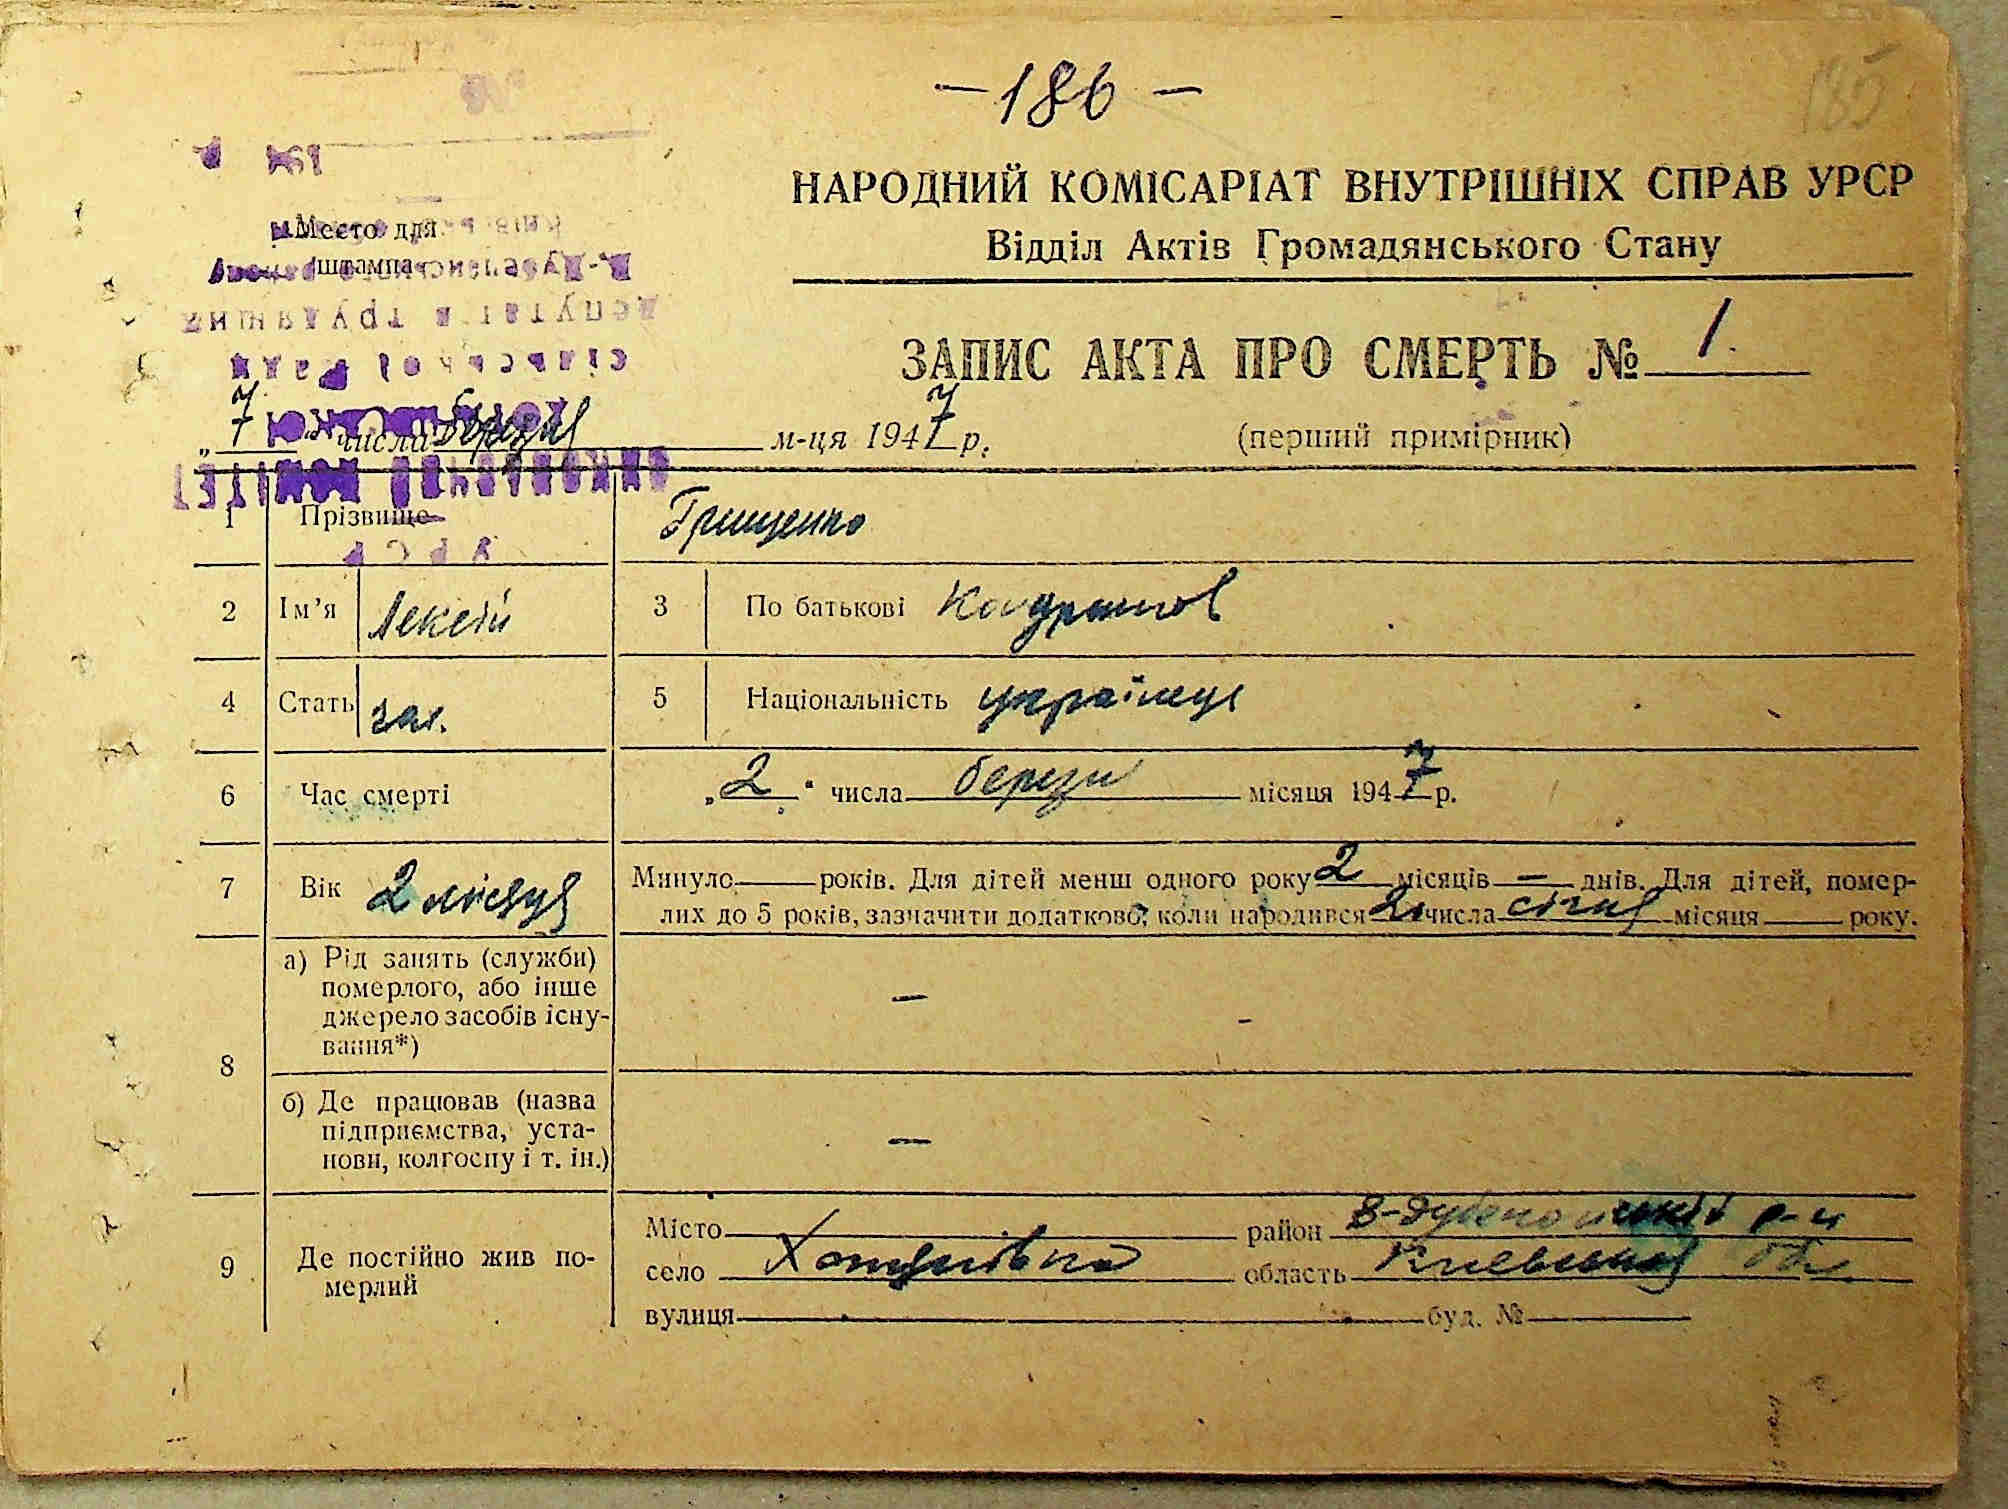 - 186 -
185
НАРОДНИЙ КОМІСАРІАТ ВНУТРІШНІХ СПРАВ УРСР
Відділ Актів Громадянського Стану
Место для
штампа
ЗАПИС АКТА ПРО СМЕРТЬ № 1.
„ 7 “ числа березня м-ця 1947 р.
(перший примірник)
1 Прізвище Грищенко
2 Ім'я Лексій 3 По батькові
4 Стать чол. 5 Національність українець
6 Час смерті „ 2 “ числа березня місяця 1947 р.
7 Вік 2 місяця Минуло — років. Для дітей менш одного року 2 місяців — днів. Для дітей, помер-
лих до 5 років, зазначити додатково, коли народився числа січня місяця року.
8 а) Рід занять (служби)
померлого, або інше
джерело засобів існу-
вання*) –
б) Де працював (назва
підприємства, уста-
нови, колгоспу і т. ін.) —
9 Де постійно жив по-
мерлий
Місто район р-н
село область Київської обл.
вулиця буд. №